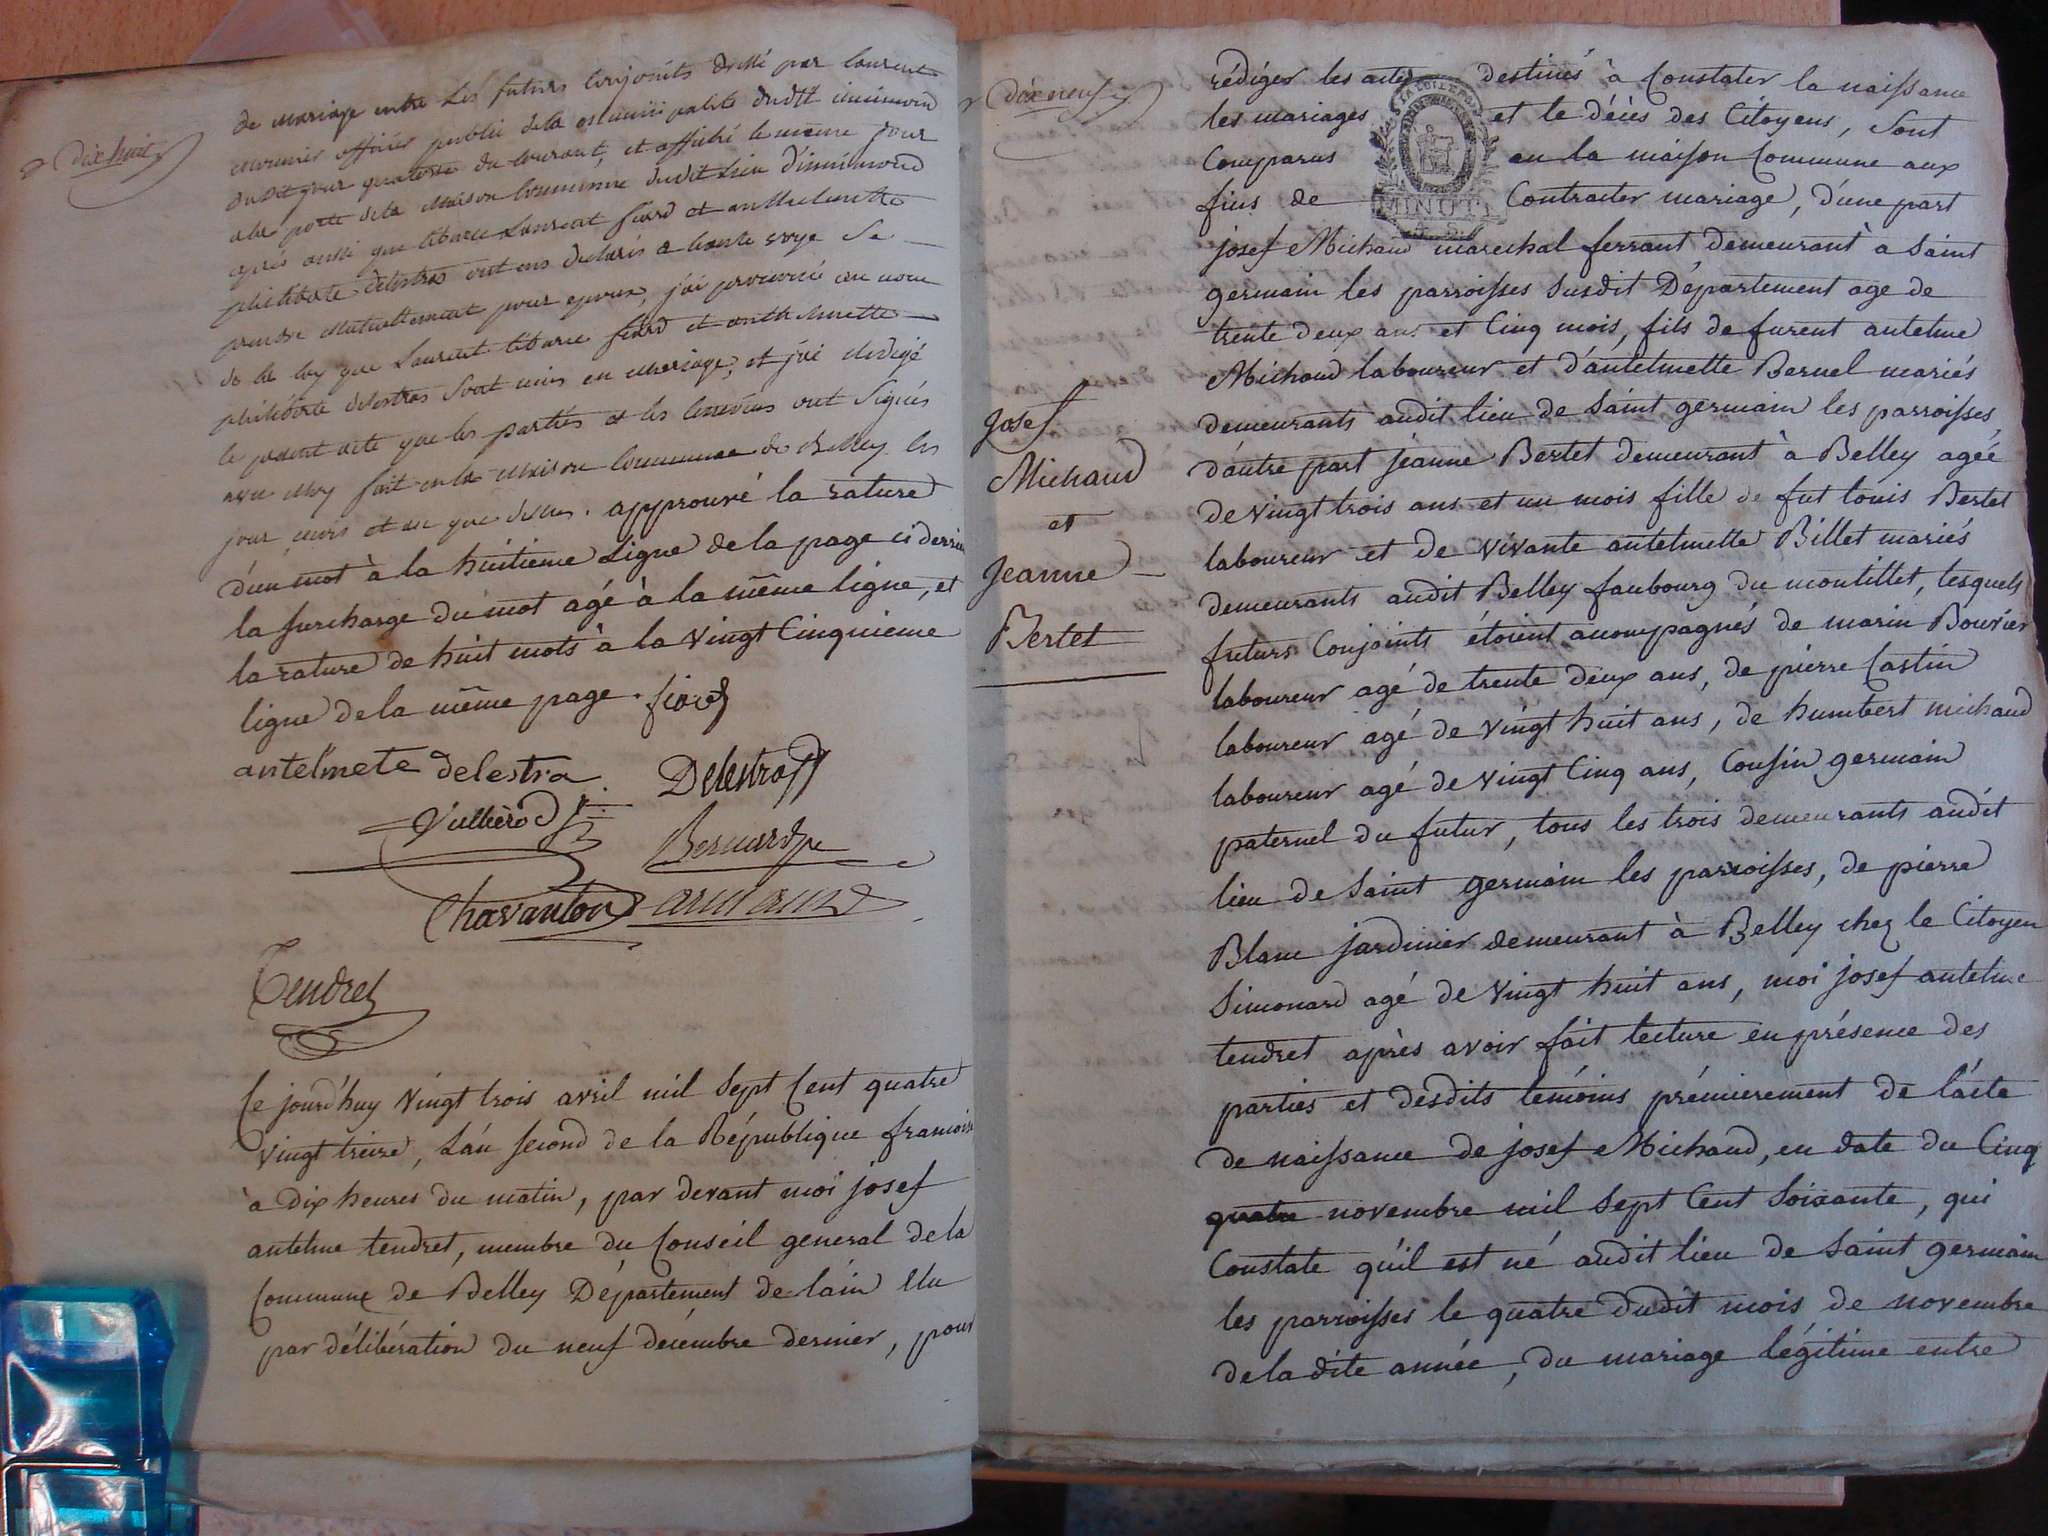 dix huit
de mariage entre les futurs conjoints dressé par laurent
officier public de la municipalité dudit
dudit jour quatorze du courant, et affiché le même jour
a la porte de la maison commune dudit lieu
après aussi que laurent fiard et anthelmette
philiberte delestraz ont eus declarés a haute voye se
prendre mutuellement pour epoux, j'ai prononcé au nom
de la loy que Laurent fiard et anthelmette
philiberte delestraz sont unis en mariage, et j'ai redigé
le present acte que les parties et les temoins ont signés
avec moy fait en la maison commune de Belley les
jour, mois et an que dessus. approuvé la rature
d'un mot à la huitieme ligne de la page ci derriere
la surcharge du mot agé à la même ligne, et
la rature de huit mots à la vingt cinquieme
ligne de la même page. fiard
antelmete delestra Delestraz
Bernard
Chavanton armand
Tendret
Ce jourd'huy vingt trois avril mil sept cent quatre
vingt treize, l'an second de la République francoise
à dix heures du matin, par devant moi josef
antelme tendret, membre du Conseil general de la
Commune de Belley Département de l'ain élu
par délibération du neuf décembre dernier, pour
dix neuf
rédiger les actes destinés à Constater la naissance
les mariages et le décès des Citoyens, sont
Comparus en la maison Commune aux
fins de Contracter mariage, d'une part
MINUTE
josef Michaud marechal ferrant demeurant à saint
germain les parroisses susdit Département age de
trente deux ans et Cinq mois, fils de furent antelme
Michaud laboureur et d'antelmette Bernel mariés
demeurants audit lieu de saint germain les parroisses,
d'autre part jeanne Bertet demeurant à Belley agée
de vingt trois ans et un mois fille de fut louis Bertet
laboureur et de vivante antelmette Billet mariés
demeurants audit Belley faubourg du montillet, lesquels
futurs Conjoints étoient acompagnés de marin Bouvier
laboureur agé de trente deux ans, de pierre Castin
laboureur agé de vingt huit ans, de humbert michaud
laboureur agé de vingt Cinq ans, Cousin germain
paternel du futur, tous les trois demeurants audit
lieu de saint germain les parroisses, de pierre
Blanc jardinier demeurant à Belley chez le Citoyen
Simonard agé de vingt huit ans, moi josef antelme
tendret après avoir fait lecture en présence des
parties et desdits témoins prémierement de l'acte
de naissance de josef Michaud, en date du Cinq
quatre novembre mil sept Cent soixante, qui
Constate qu'il est né audit lieu de saint germain
les parroisses le quatre dudit mois de novembre
de la dite année, du mariage légitime entre
Josef
Michaud
et
Jeanne
Bertet